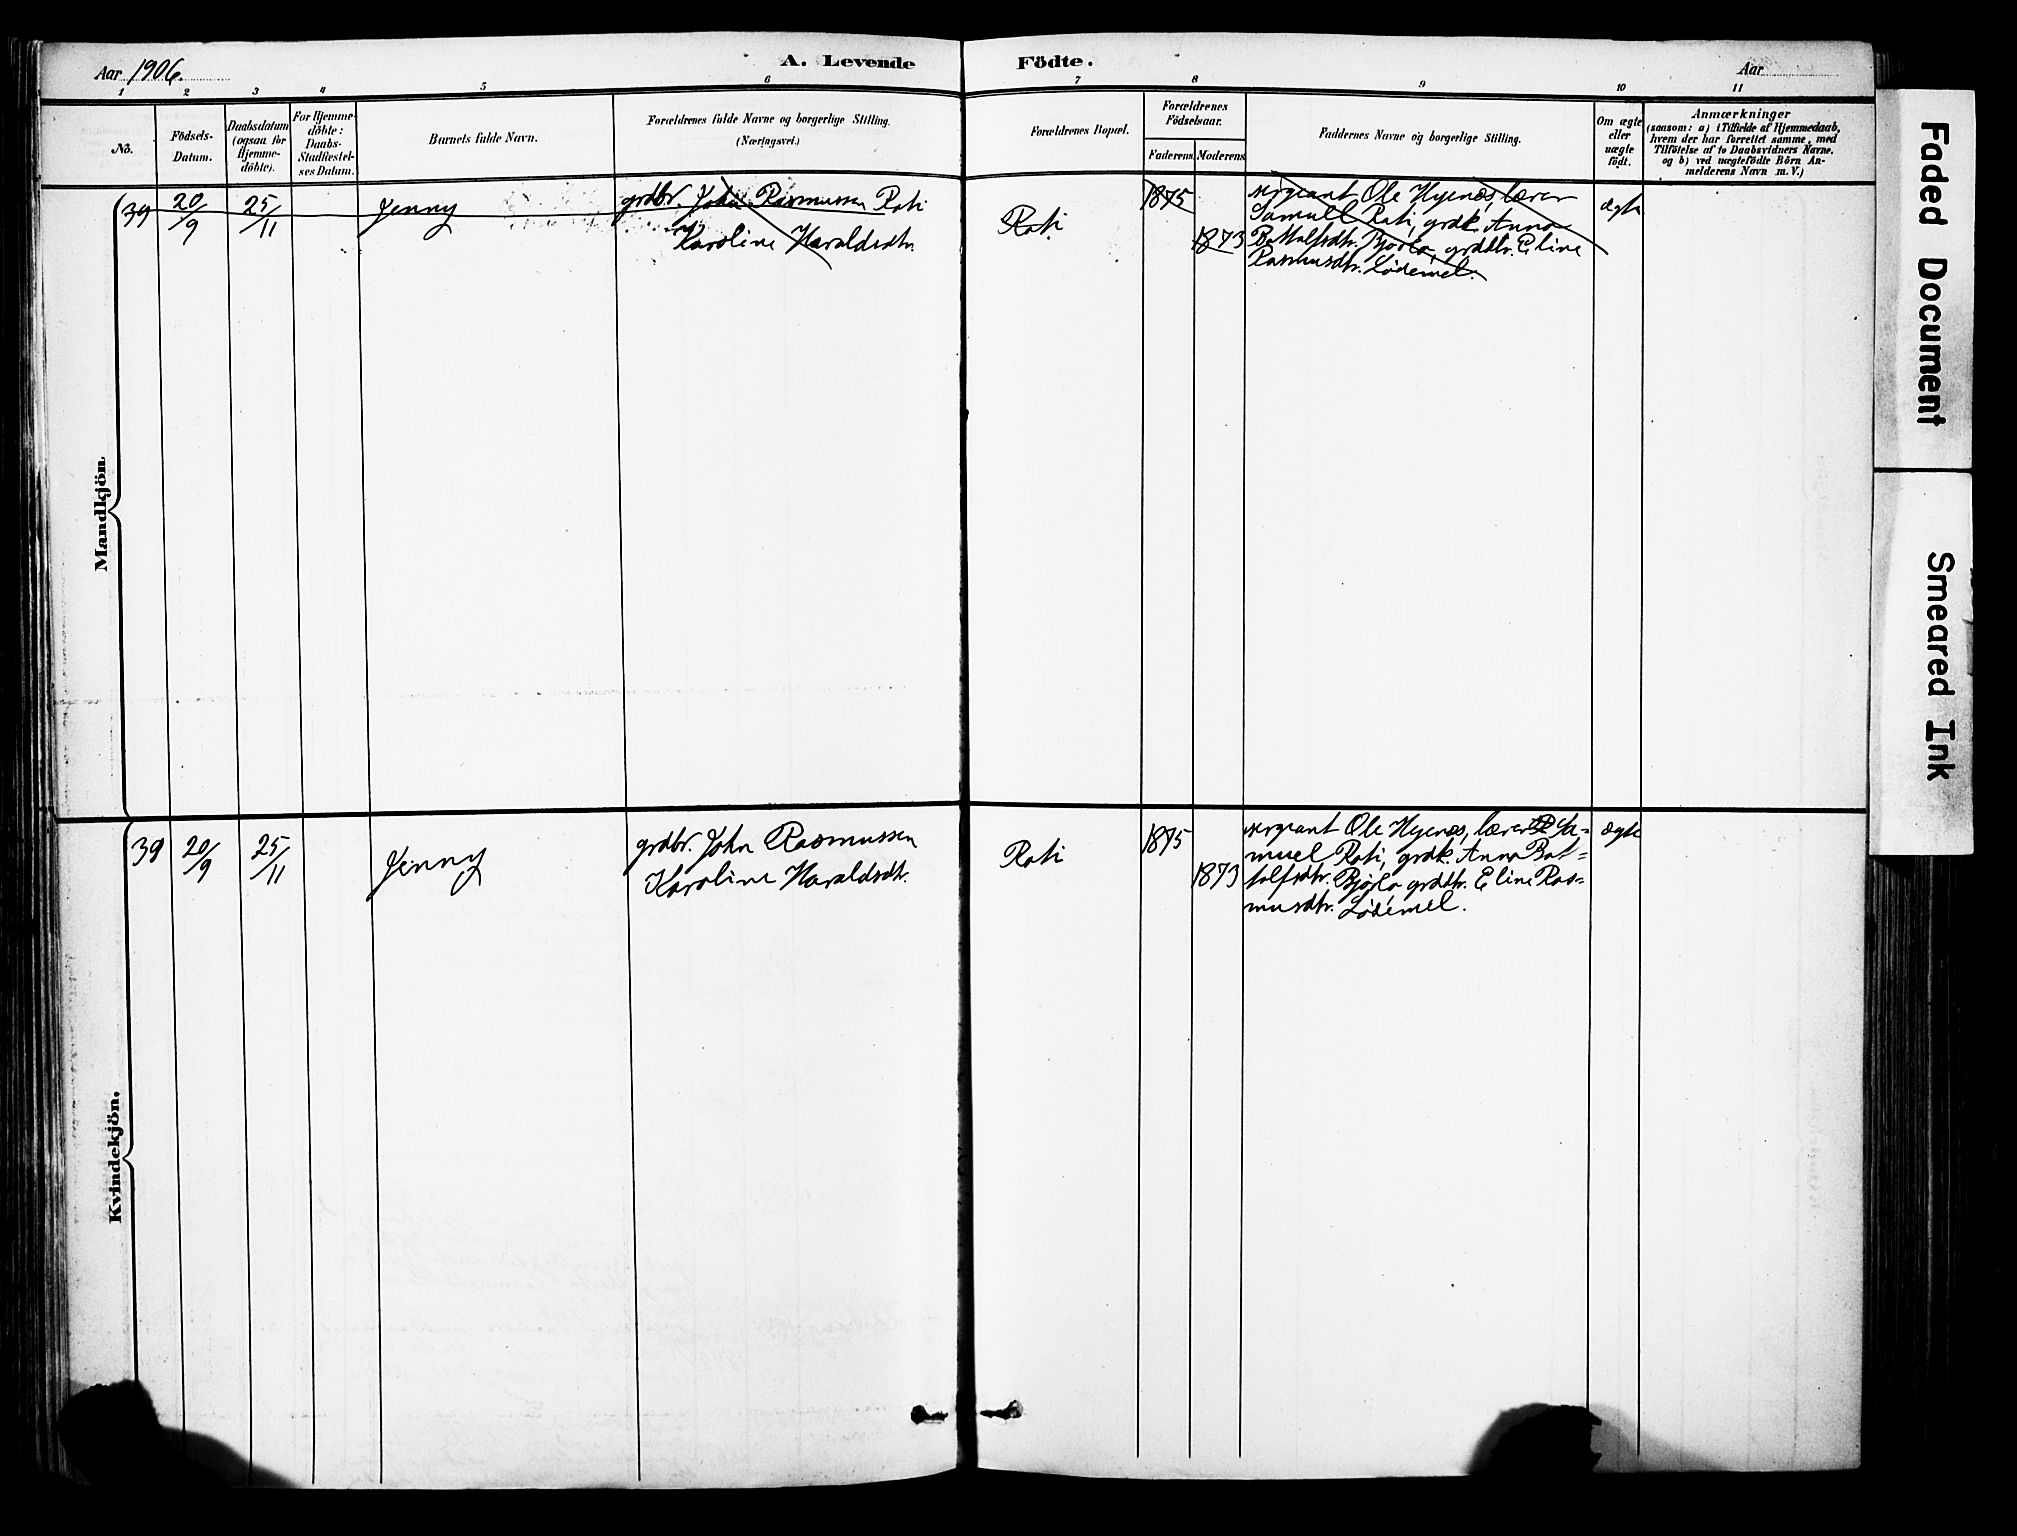 Aar 1906.
A. Levende Födte.
Aar
1 2 3 4 5 6 7 8 9 10 11
No.
Födsels-
Datum.
Daabsdatum
(ogsaa for
Hjemme-
döbte).
For Hjemme-
döbte:
Daabs-
Stadfæstel-
ses Datum.
Barnets fulde Navn.
Forældrenes fulde Navne og borgerlige Stilling.
(Næringsvei.)
Forældrenes Bopæl.
Forældrenes
Födselsaar.
Faderens. Moderens.
Faddernes Navne og borgerlige Stilling.
Om ægte
eller
uægte
födt.
Anmærkninger
(saasom: a) i Tilfælde af Hjemmedaab,
hvem der har forrettet samme, med
Tilföielse af to Daabsvidners Navne.
og b) ved uægtefödte Börn An-
melderens Navn m. V.)
Mandkjön.
39 20/9 25/11 Jenny
grdbr. John Rasmussen Rati
Karoline Haraldsdtr.
Rati
1875
1873
sergeant Ole Hyenæs, lærer
Samuel Rati, grdk. Anna
Bottolfsdtr. Bjørlo, grdttr. Eline
Rasmusdtr. Lødemel.
ægte
Kvindekjön.
39 20/9 25/11 Jenny
grdbr. John Rasmussen
Karoline Haraldsdtr.
Rati
1875
1873
sergeant Ole Hyenæs, lærer Sa-
muel Rati, grdk. Anna Bot-
tolfsdtr. Bjørlo grdttr. Eline Ras-
musdtr. Lødemel.
ægte
Faded Document
Smeared Ink